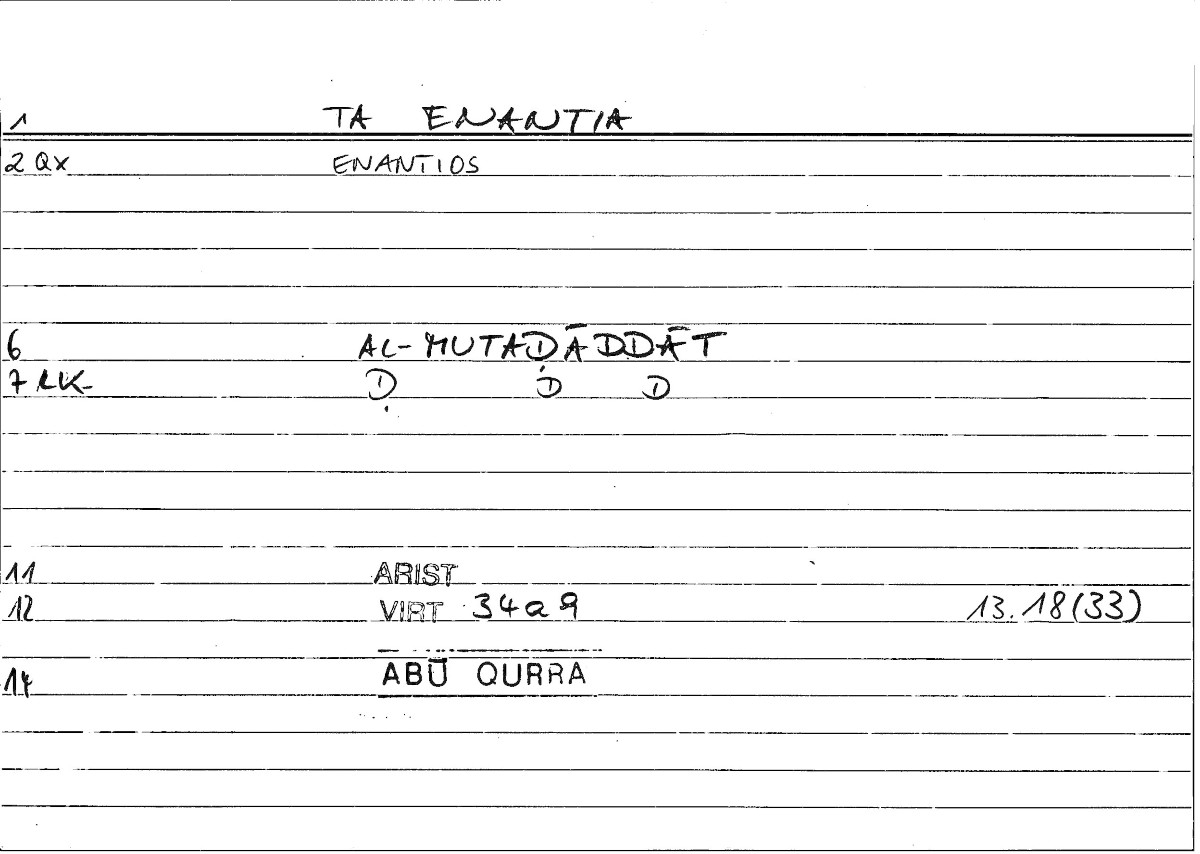 1 TA ENANTIA
2 QX ENANTIOS
6 AL-MUTAḌĀDDĀT
7 LK- Ḍ D D
11 ARIST
12 VIRT 34a9 13.18(33)
14 ABŪ QURRA